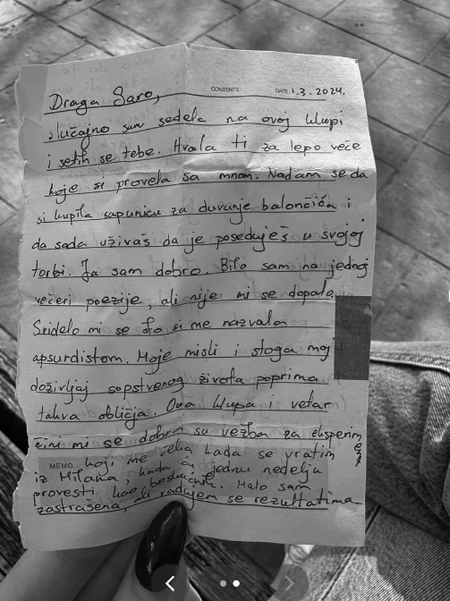 CONTENTS
DATE 1.3.2024.
Draga Saro,
slučajno sam sedela na ovoj klupi
i setih se tebe. Hvala ti za lepo veče
koje si provela sa mnom. Nadam se da
si kupila sapunicu za duvanje balončića i
da sada uživaš da je poseduješ u svojoj
torbi. Ja sam dobro. Bila sam na jednoj
večeri poezije, ali nije mi se dopala.
Svidelo mi se što si me nazvala
apsurdistom. Moje misli i stoga moj
doživljaj sopstvenog života poprima
takva obličja. Ova klupa i vetar
čini mi se dobra su vežba za eksperiment
MEMO
koji me čeka kada se vratim
iz Milana, kada ću jednu nedelju
provesti kao beskućnik. Malo sam
zastrašena, ali radujem se rezultatima